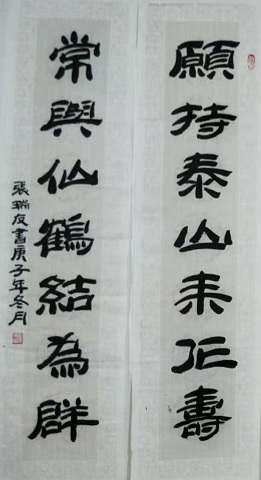 願持泰山來作壽
常與仙鶴結為群
張瑞友書庚子年冬月